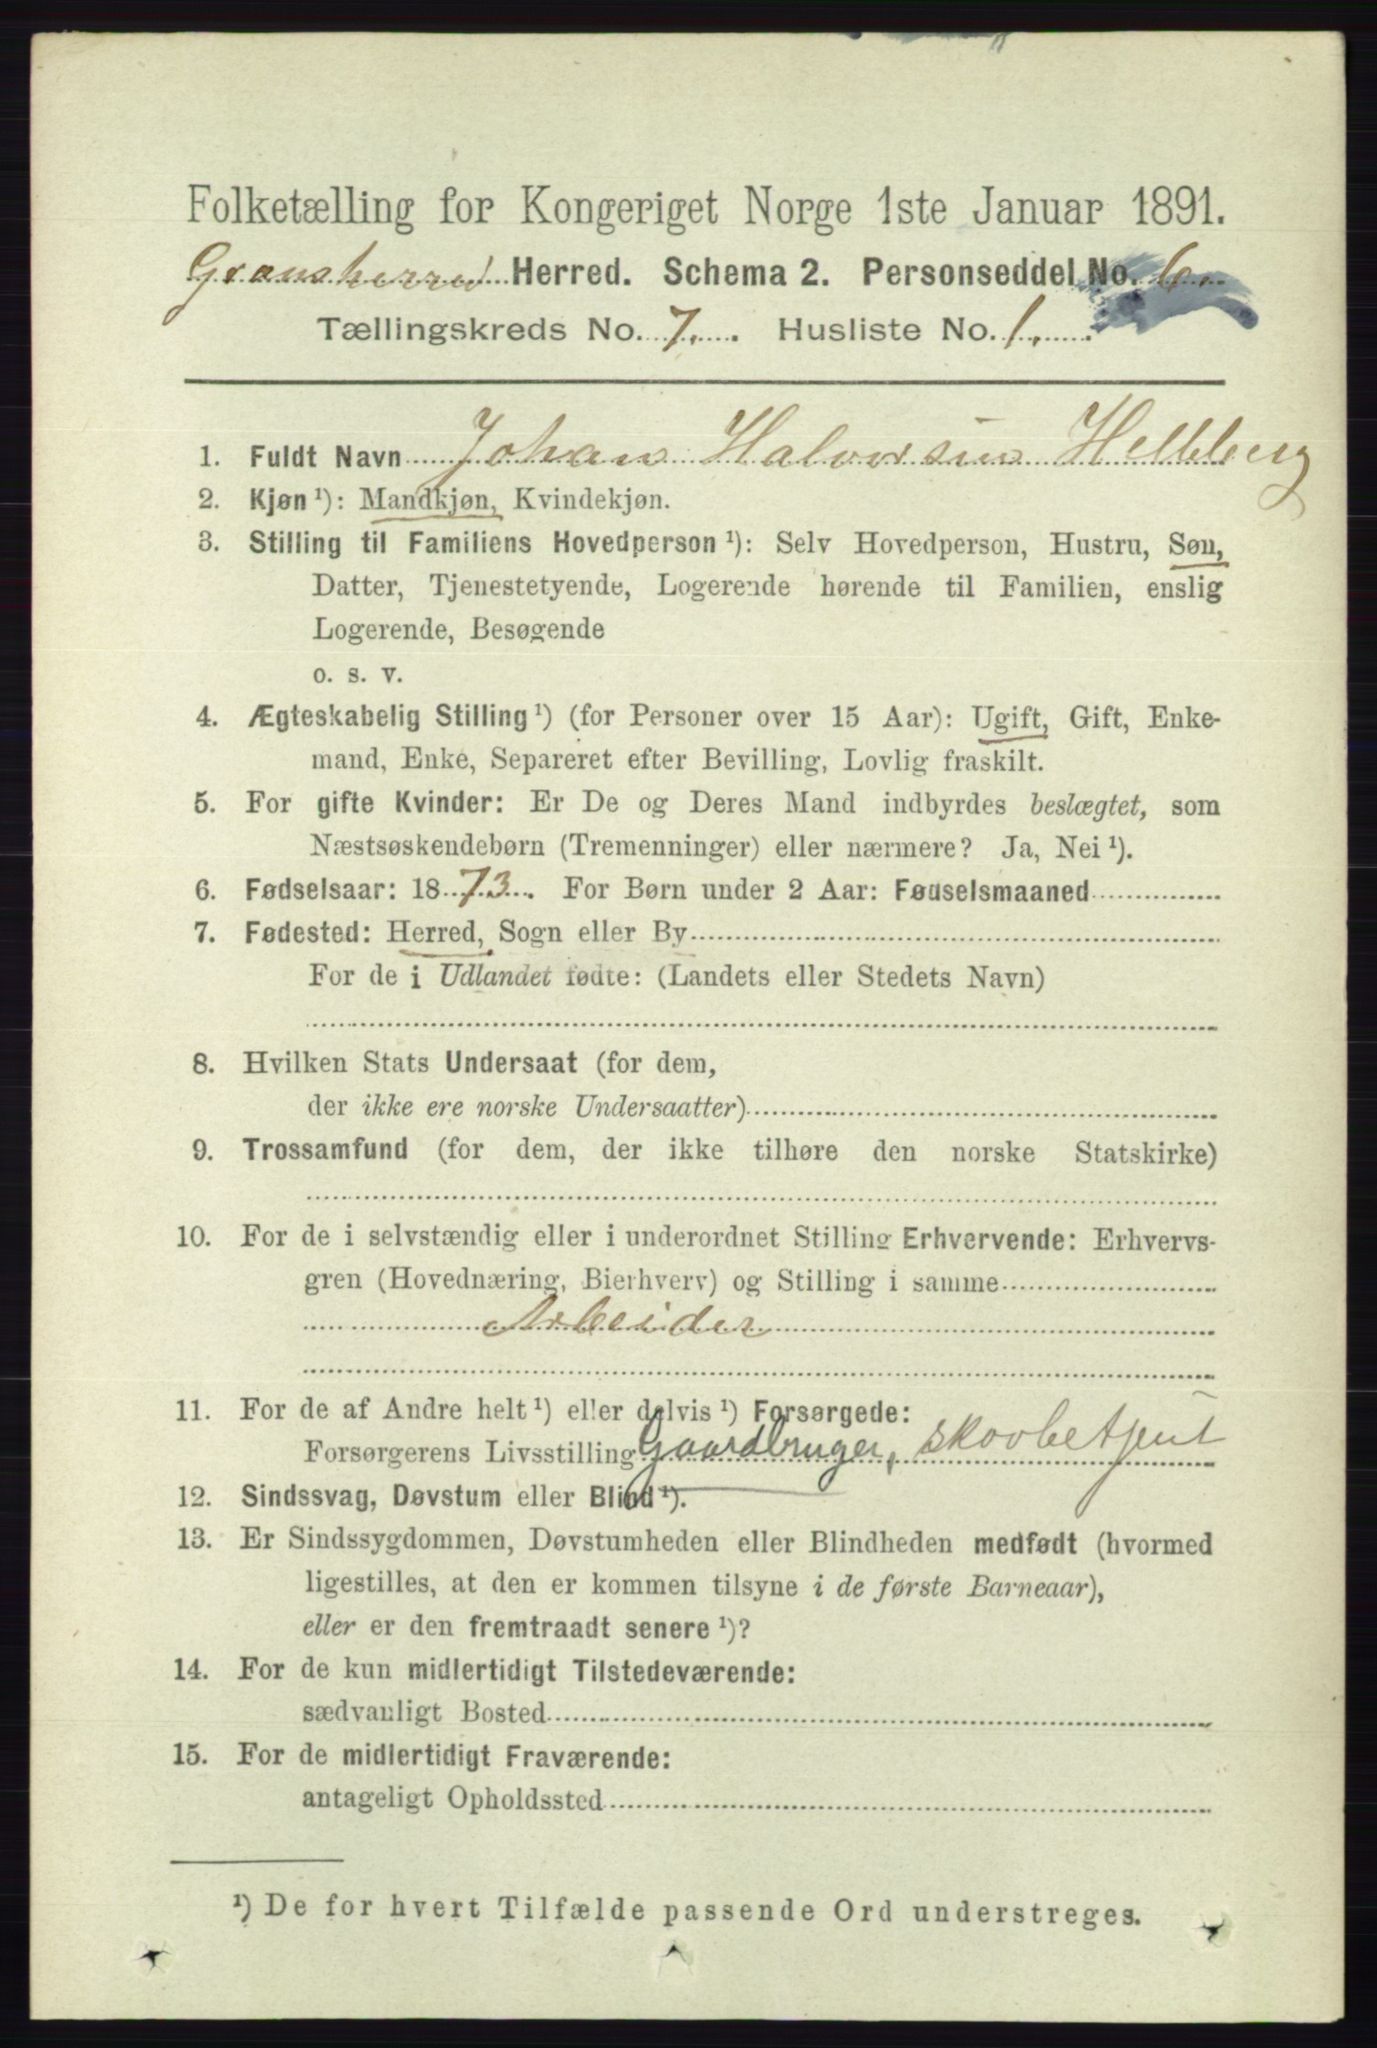 Folketælling for Kongeriget Norge 1ste Januar 1891.
Gransherred Herred. Schema 2. Personseddel No. 6.
Tællingskreds No. 7. Husliste No. 1.
1. Fuldt Navn Johan Halvorsen Helleberg
2. Kjøn ¹): Mandkjøn, Kvindekjøn.
3. Stilling til Familiens Hovedperson ¹): Selv Hovedperson, Hustru, Søn,
Datter, Tjenestetyende, Logerende hørende til Familien, enslig
Logerende, Besøgende
o. s. v.
4. Ægteskabelig Stilling ¹) (for Personer over 15 Aar): Ugift, Gift, Enke-
mand, Enke, Separeret efter Bevilling, Lovlig fraskilt.
5. For gifte Kvinder: Er De og Deres Mand indbyrdes beslægtet, som
Næstsøskendebørn (Tremenninger) eller nærmere? Ja, Nei ¹).
6. Fødselsaar: 1873. For Børn under 2 Aar: Fødselsmaaned
7. Fødested: Herred, Sogn eller By
For de i Udlandet fødte: (Landets eller Stedets Navn)
8. Hvilken Stats Undersaat (for dem,
der ikke ere norske Undersaatter)
9. Trossamfund (for dem, der ikke tilhøre den norske Statskirke)
10. For de i selvstændig eller i underordnet Stilling Erhvervende: Erhvervs-
gren (Hovednæring, Bierhverv) og Stilling i samme
Arbeider
11. For de af Andre helt ¹) eller delvis ¹) Forsørgede:
Forsørgerens Livsstilling Gaardbruger, skovbetjent
12. Sindssvag, Døvstum eller Blind ¹).
13. Er Sindssygdommen, Døvstumheden eller Blindheden medfødt (hvormed
ligestilles, at den er kommen tilsyne i de første Barneaar),
eller er den fremtraadt senere ¹)?
14. For de kun midlertidigt Tilstedeværende:
sædvanligt Bosted
15. For de midlertidigt Fraværende:
antageligt Opholdssted
¹) De for hvert Tilfælde passende Ord understreges.